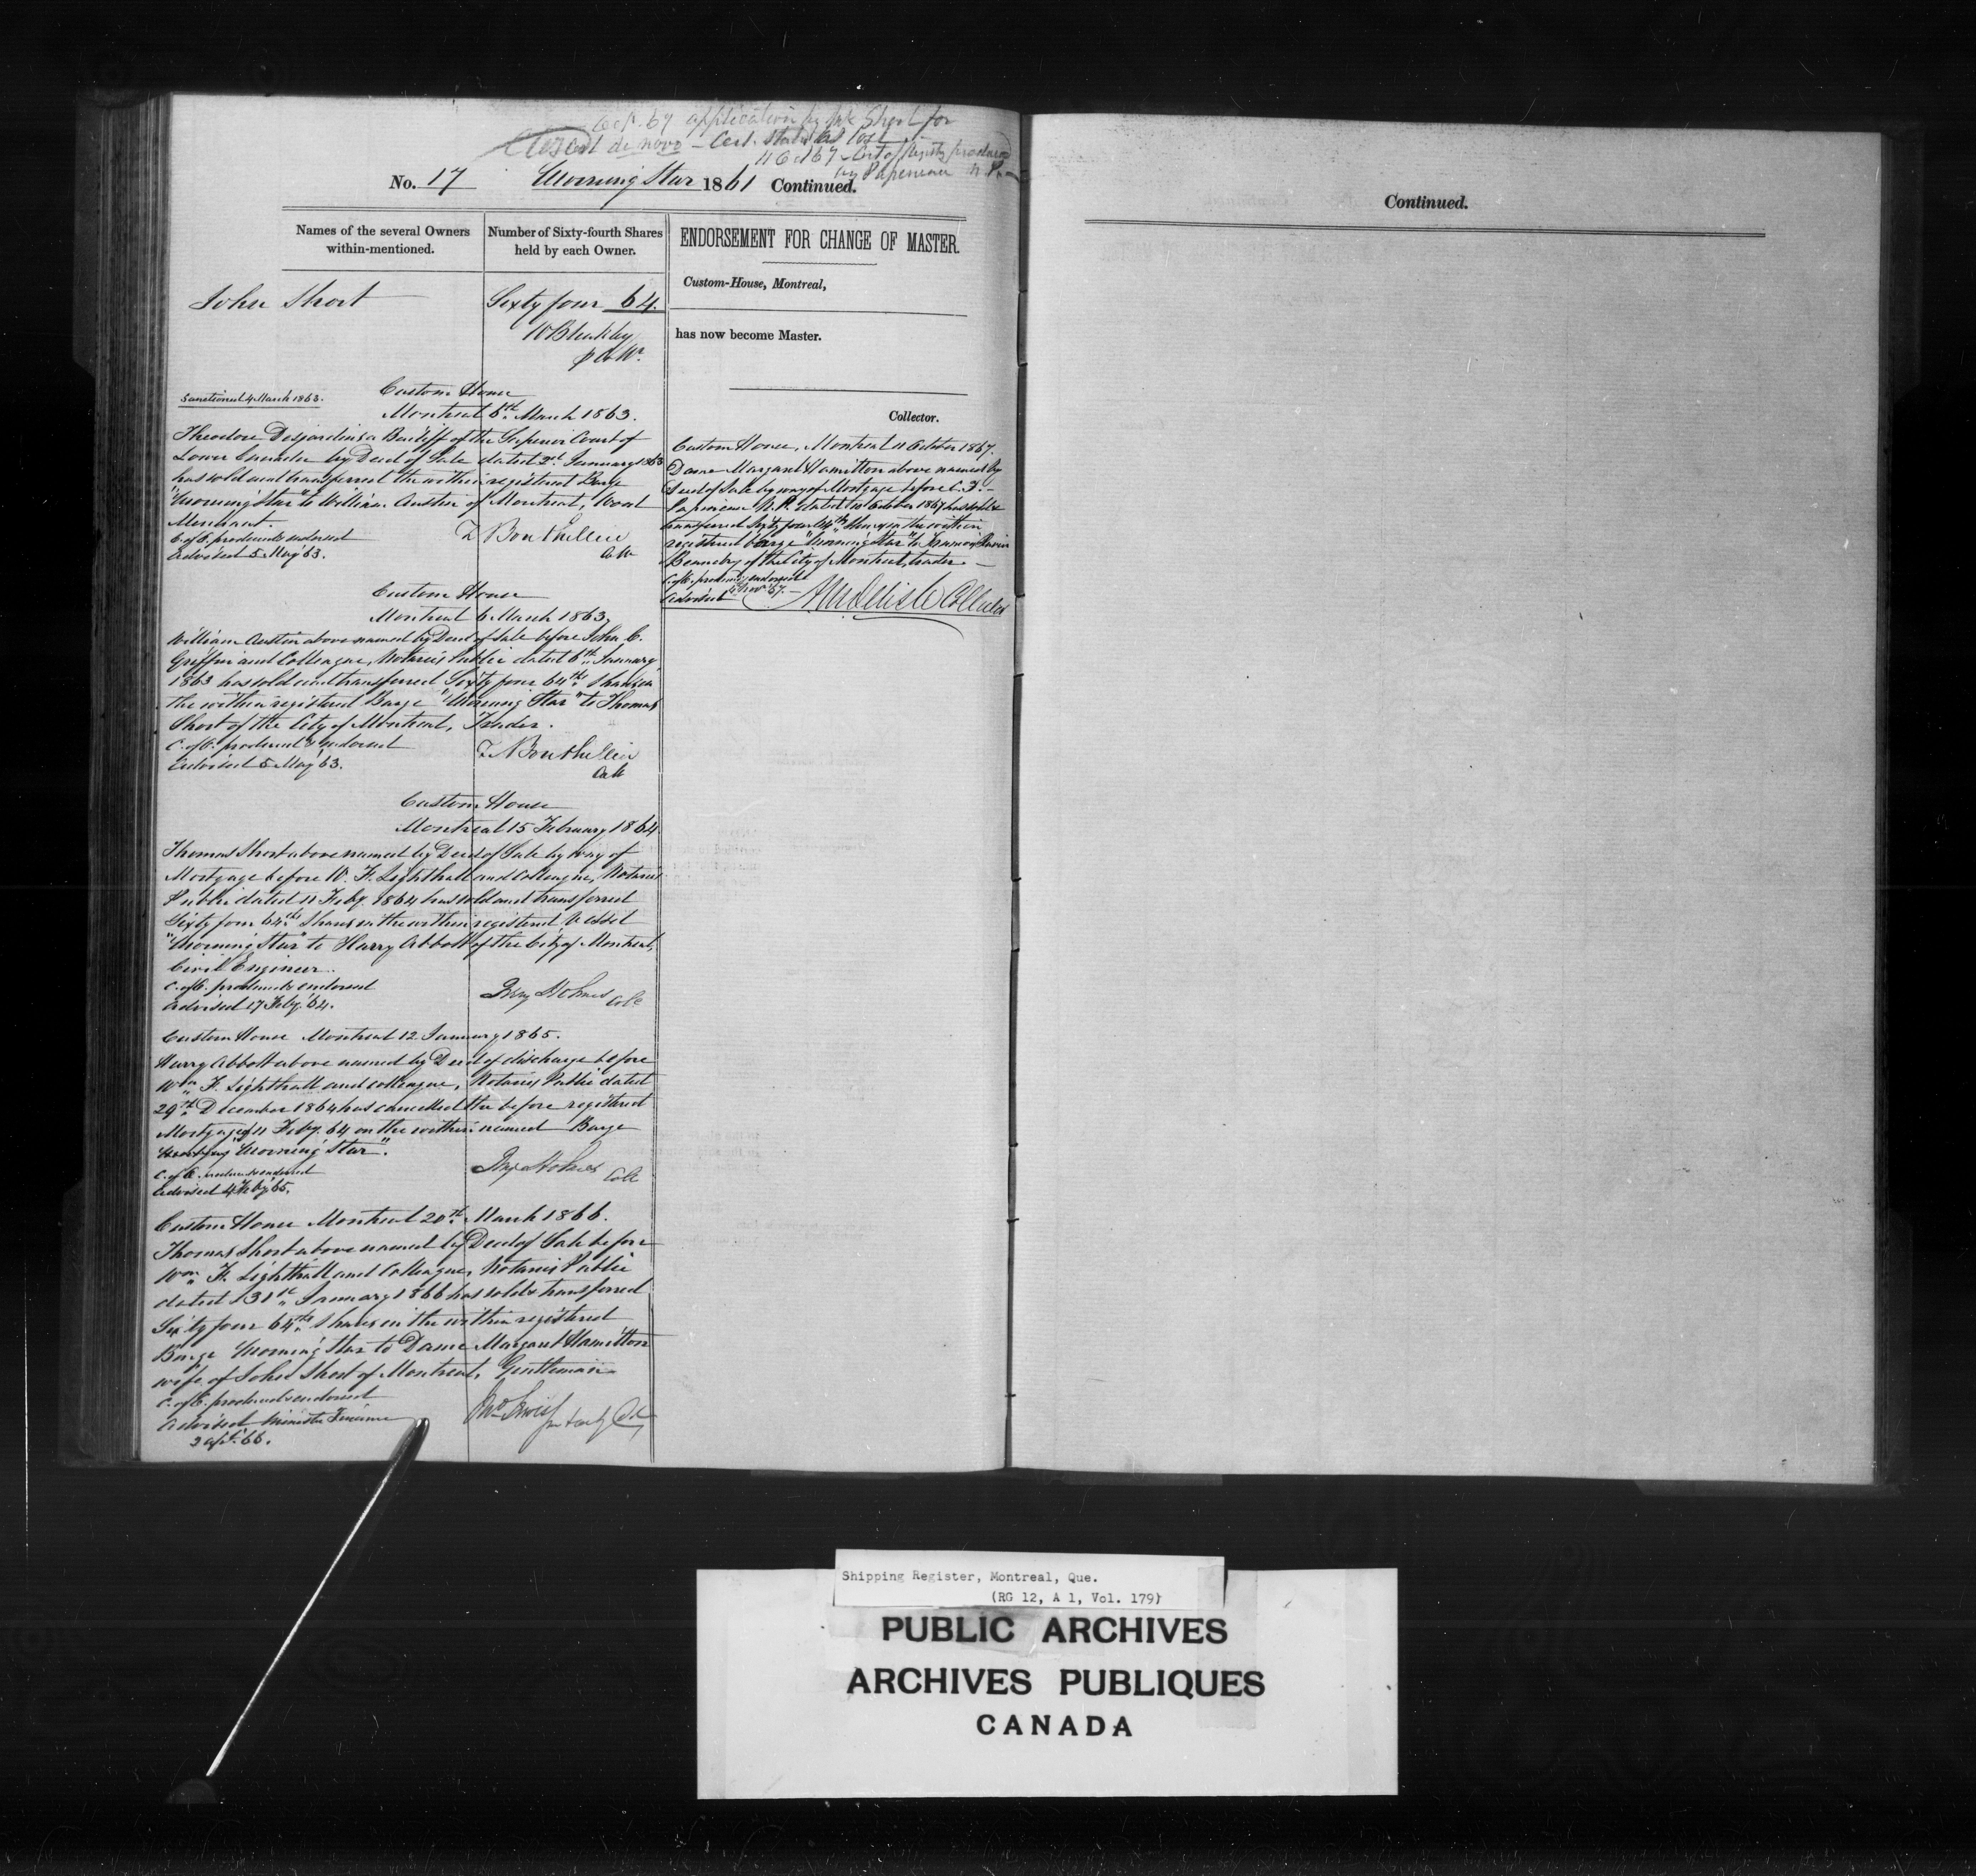 Oct. 67 application by Short for
Closed de novo - Cert. stated as lost
11 Oct 67 - Cert of Registry produced
by Papineau N.P.
No. 17 Morning Star 1861 Continued.
Names of the several Owners
within-mentioned.
Number of Sixty-fourth Shares
held by each Owner.
John Short
Sixty four 64.
W Bleakley
Sanctioned 4 March 1863.
Custom House
Montreal 6th March 1863.
Theodore Desjardins a Bailiff of the Superior Court of
Lower Canada by Deed of Sale dated 2d January 1863
has sold and transferred the within registered Barge
"Morning Star" to William Austin of Montreal, Wood
Merchant.
C. of O. produced & endorsed
Advised 5 May 63.
T Bouthillier
Custom House
Montreal 6 March 1863.
William Austin above named by Deed of Sale before John C.
Griffin and Colleague, Notaries Public dated 6th January
1863 has sold and transferred Sixty four 64ths Shares in
the within registered Barge "Morning Star" to Thomas
Short of the City of Montreal, Trader.
C. of O. produced & endorsed
Advised 5 May 63.
T Bouthillier
Custom House
Montreal 15 February 1864
Thomas Short above named by Deed of Sale by way of
Mortgage before W. F. Lighthall and Colleague, Notaries
Public dated 11 Feby. 1864 has sold and transferred
Sixty four 64ths Shares in the within registered Vessel
"Morning Star" to Harry Abbott of the City of Montreal,
Civil Engineer.
C. of O. produced & endorsed
Advised 17 Feby. 64.
Benj Holmes Coll
Custom House Montreal 12 January 1865.
Harry Abbott above named by Deed of discharge before
Wm F. Lighthall and colleague, Notaries Public dated
29th December 1864 has cancelled the before registered
Mortgage of 11 Feby. 64 on the within named Barge
"Morning Star".
C. of O. produced & endorsed
Advised 4 Feby 65.
Benj Holmes Coll
Custom House Montreal 20th March 1866.
Thomas Short above named by Deed of Sale before
Wm F. Lighthall and Colleague, Notaries Public
dated 31st January 1866 has sold & transferred
Sixty four 64ths Shares in the within registered
Barge Morning Star to Dame Margaret Hamilton
wife of John Short of Montreal, Gentleman
C. of O. produced & endorsed
Advised Minister Finance
3 Apl. 66.
Jno Lewis
ENDORSEMENT FOR CHANGE OF MASTER.
Custom-House, Montreal,
has now become Master.
Collector.
Custom House, Montreal 11 October 1867.
Dame Margaret Hamilton above named by
Deed of Sale by way of Mortgage before C. F.
Papineau N.P. dated 10 October 1867 has sold &
transferred Sixty four 64ths Shares in the within
registered barge "Morning Star" to
Beaudry of the City of Montreal, trader
C. of O. produced & endorsed
Advised 4 Nov 67.
AM Delisle Collector
Continued.
Shipping Register, Montreal, Que.
(RG 12, A 1, Vol. 179)
PUBLIC ARCHIVES
ARCHIVES PUBLIQUES
CANADA